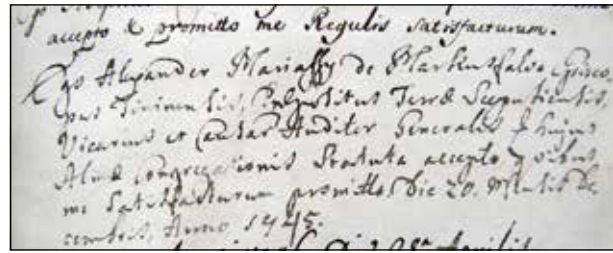 accepto & promitto me Regulis satisfacturum.
Ego Alexander Mariassy de Markusfalva, Episco
pus Tininensis, Præpositus Terræ Scepusiensis
Vicarius et Causar Auditor Generalis, hujus
Almæ Congregationis Statuta accepto, &
me Satisfacturum promitto, Die 20. Mensis De
cembris, Anno 1745.
Aprilis